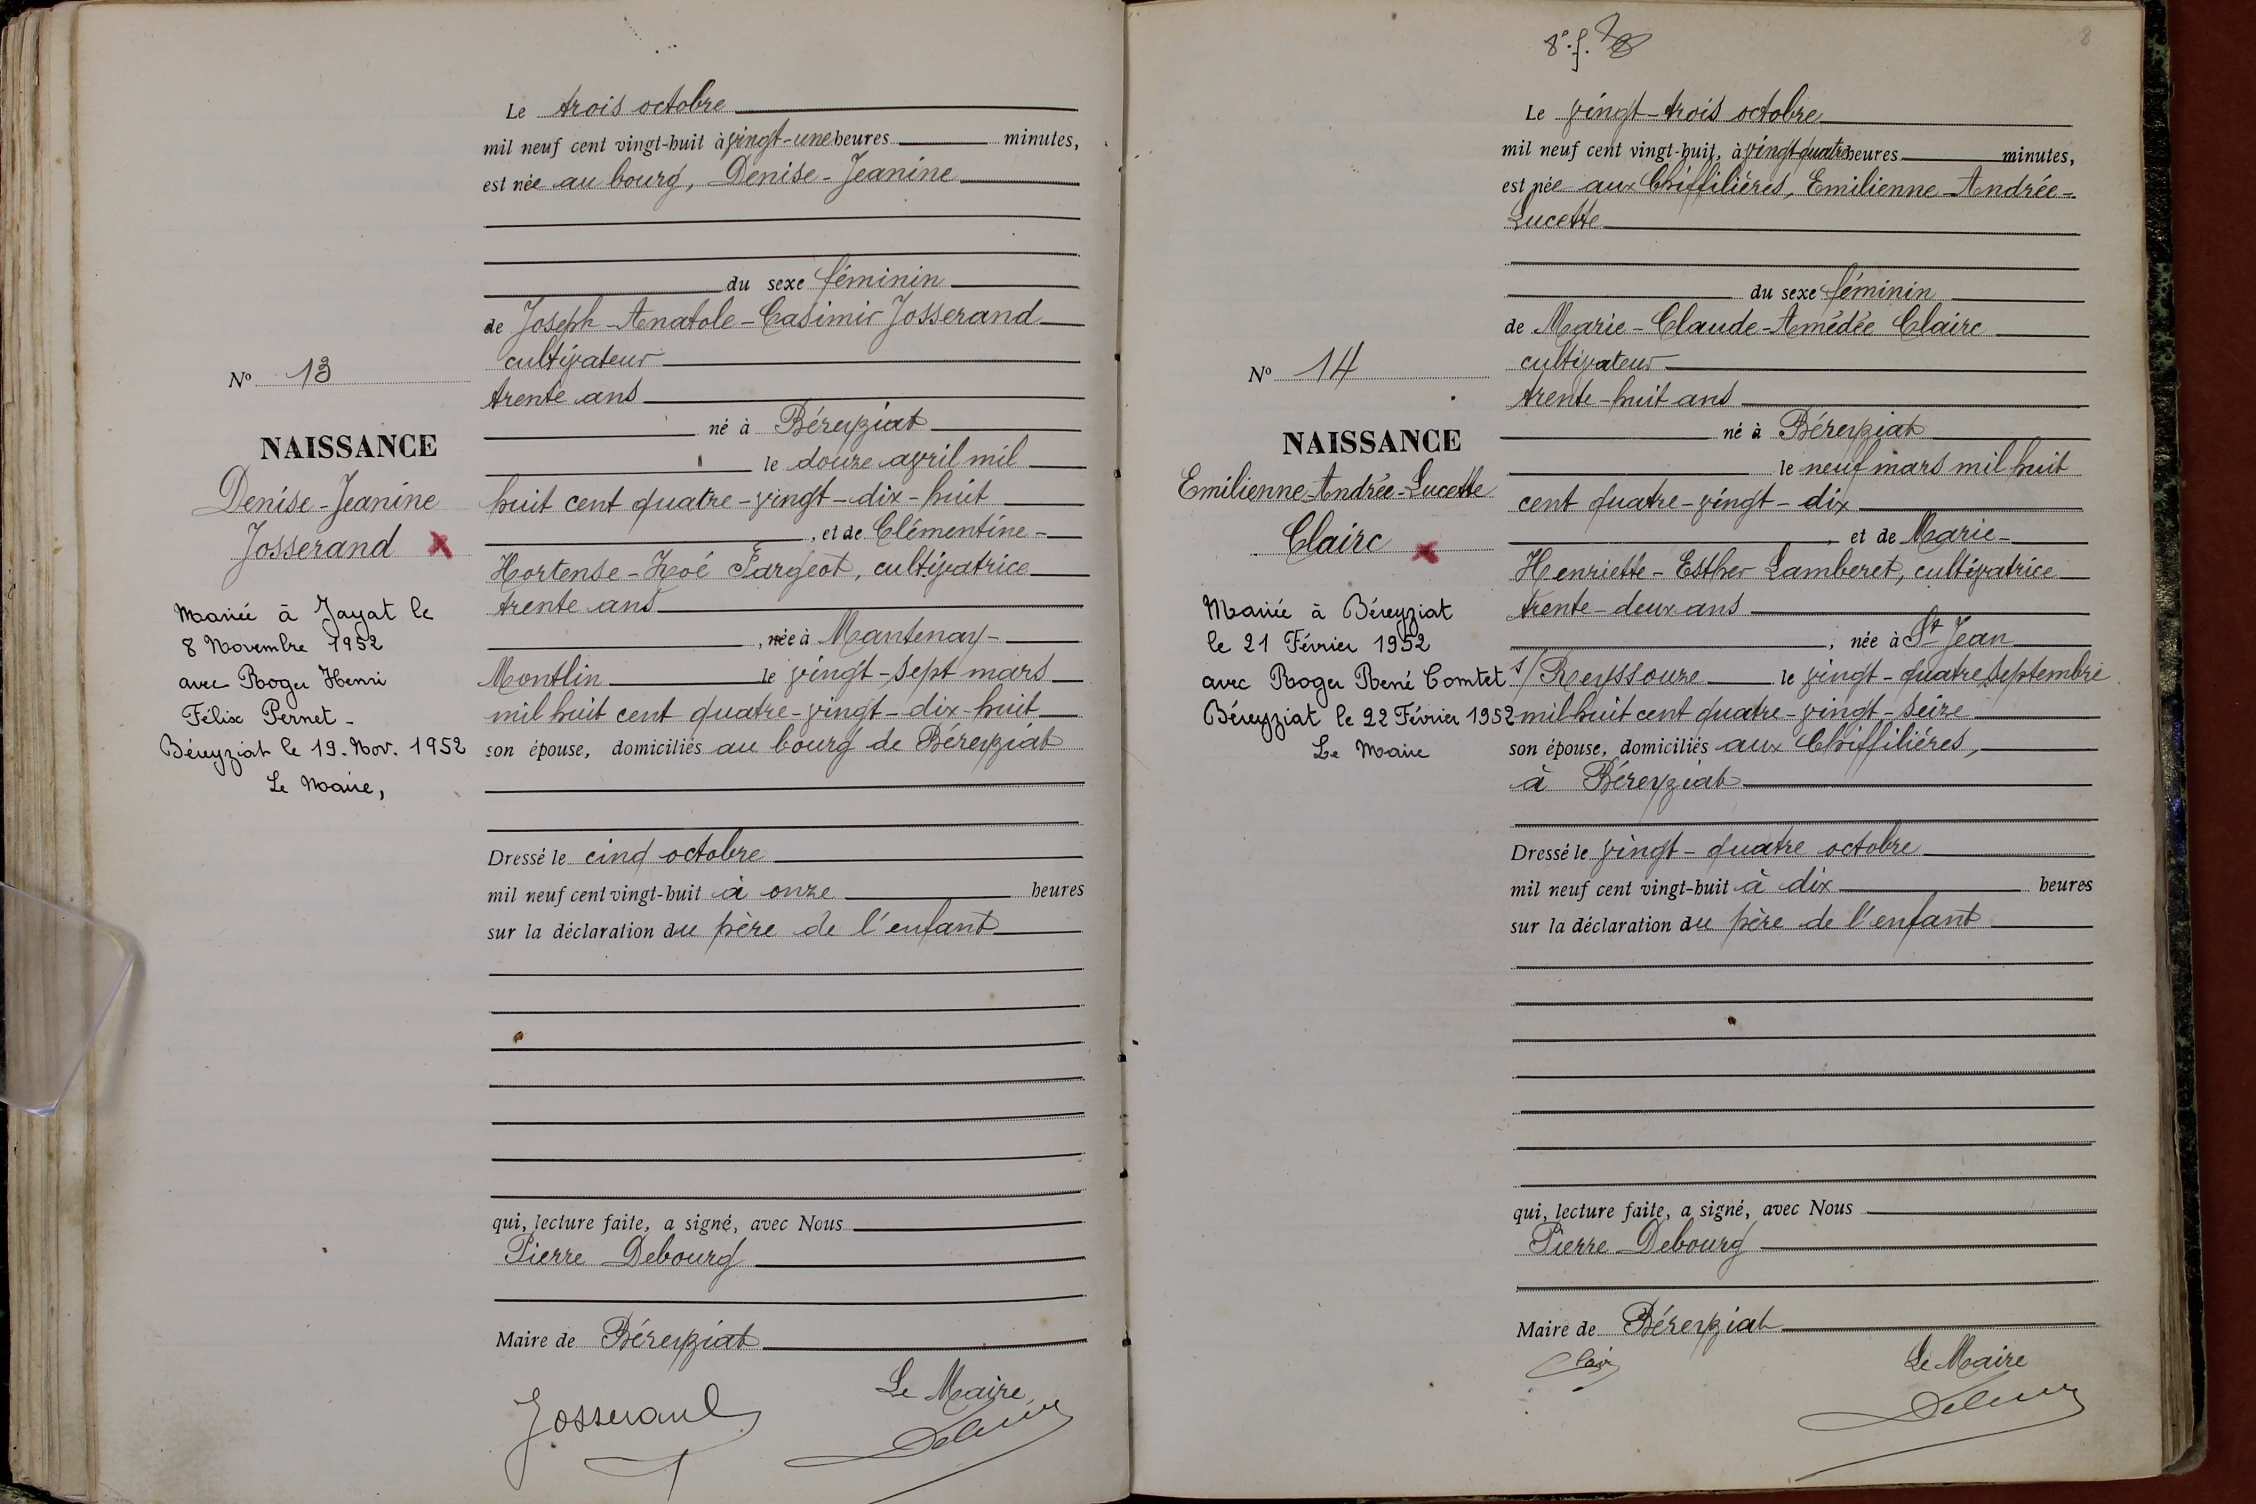 Le trois octobre
mil neuf cent vingt-huit à vingt-une heures minutes,
est née au bourg, Denise-Jeanine
du sexe féminin
de Joseph-Anatole-Casimir Josserand
cultivateur
trente ans
né à Béreyziat
le douze avril mil
huit cent quatre-vingt-dix-huit
, et de Clémentine-
Hortense-Zoé Fargeot, cultivatrice
trente ans
, née à Mantenay-
Montlin le vingt-sept mars
mil huit cent quatre-vingt-dix-huit
son épouse, domiciliés au bourg de Béreyziat
Dressé le cinq octobre
mil neuf cent vingt-huit à onze heures
sur la déclaration du père de l'enfant
qui, lecture faite, a signé, avec Nous
Pierre Debourg
Maire de Béreyziat
Le Maire
Josserand
No 13
NAISSANCE
Denise-Jeanine
Josserand
Mariée à Jayat le
8 Novembre 1952
avec Roger Henri
Félix Pernet -
Béreyziat le 19. Nov. 1952
Le Maire,
8e. f.
8
Le vingt-trois octobre
mil neuf cent vingt-huit, à vingt-quatre heures minutes,
est née aux Chiffilières, Emilienne-Andrée-
Lucette
du sexe féminin
de Marie-Claude-Amédée Clairc
cultivateur
trente-huit ans
né à Béreyziat
le neuf mars mil huit
cent quatre-vingt-dix
, et de Marie-
Henriette-Esther Lamberet, cultivatrice
trente-deux ans
, née à St Jean
s/Reyssouze le vingt-quatre septembre
mil huit cent quatre-vingt-seize
son épouse, domiciliés aux Chiffilières,
à Béreyziat
Dressé le vingt-quatre octobre
mil neuf cent vingt-huit à dix heures
sur la déclaration du père de l'enfant
qui, lecture faite, a signé, avec Nous
Pierre Debourg
Maire de Béreyziat
Le Maire
No 14
NAISSANCE
Emilienne-Andrée-Lucette
Clairc
Mariée à Béreyziat
le 21 Février 1952
avec Roger René Comtet
Béreyziat le 22 Février 1952
Le Maire